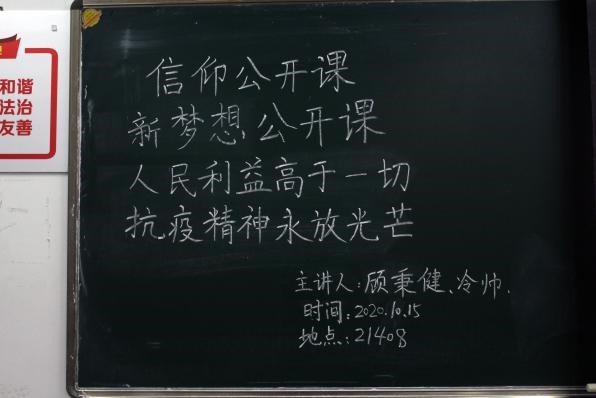 和谐
法治
友善
信仰公开课
新梦想公开课
人民利益高于一切
抗疫精神永放光芒
主讲人:顾秉健、冷帅.
时间:2020.10.15
地点:21408